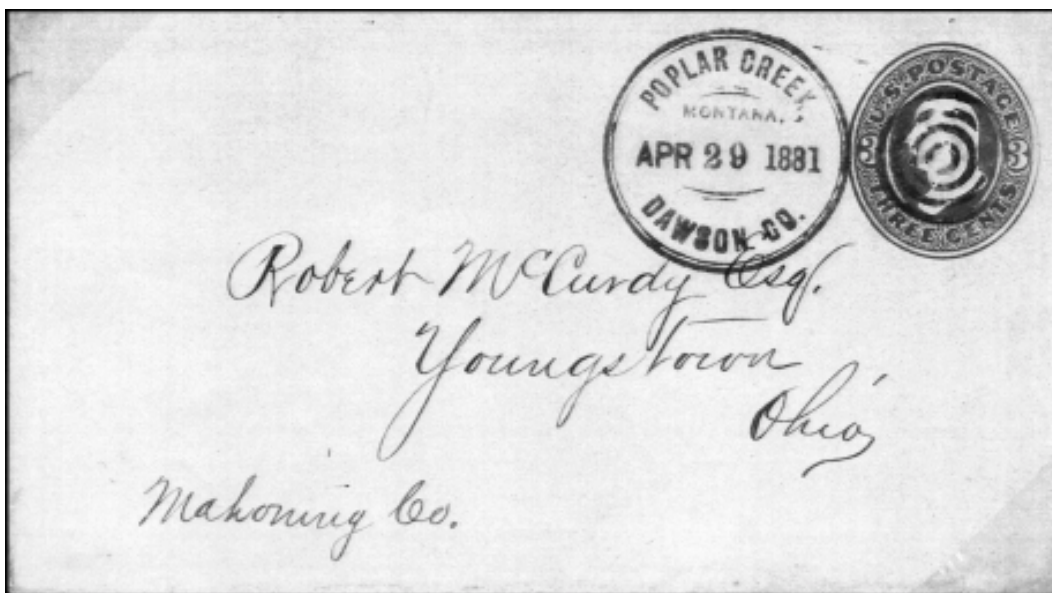 POPLAR CREEK,
MONTANA.
APR 29 1881
DAWSON CO.
U.S. POSTAGE
3 3
THREE CENTS
Robert McCurdy Esq.
Youngstown
Ohio
Mahoning Co.